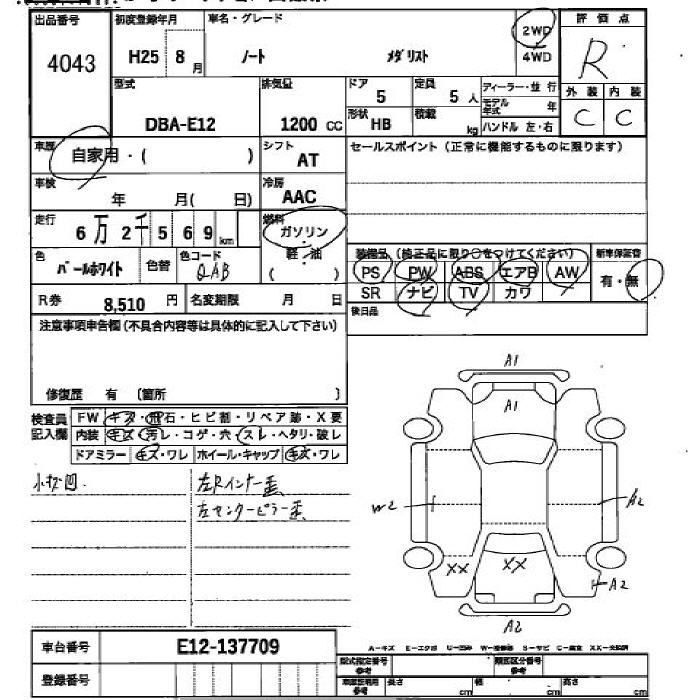 出品番号 初度登録年月 車名・グレード 2WD 評価点
4043 H25 8月 ノート メダリスト 4WD R
型式 排気量 ドア 定員 ディーラー・並行 外装 内装
DBA-E12 1200 CC 5 5人 モデル年式 年 C C
形状 HB 積載 kg ハンドル 左・右
車歴 自家用・( ) シフト AT セールスポイント(正常に機能するものに限ります)
車検 年 月( 日) 冷房 AAC
走行 6万2千569km 燃料 ガソリン・軽油 ( )
色 パールホワイト 色替 色コード QAB
装備品(純正品に限り○をつけてください) 新車保証書
PS PW ABS エアB AW 有・無
SR ナビ TV カワ
R券 8,510 円 名変期限 月 日 後日品
注意事項申告欄(不具合内容等は具体的に記入して下さい)
修復歴 有 〔箇所 〕
検査員記入欄 FW キズ・飛石・ヒビ割・リペア跡・X要
内装 キズ・汚レ・コゲ・穴・スレ・ヘタリ・破レ
ドアミラー キズ・ワレ ホイール・キャップ キズ・ワレ
小キズ凹. 左Rインナー歪
左センターピラー歪
A1
A1
W2 A2
XX XX A2
A2
車台番号 E12-137709
A-キズ E-エクボ U-凹み W-補修跡 S-サビ C-腐食 XX-交換済
登録番号
型式指定番号 参考 類別区分番号 参考
長さ cm 幅 cm 高さ cm